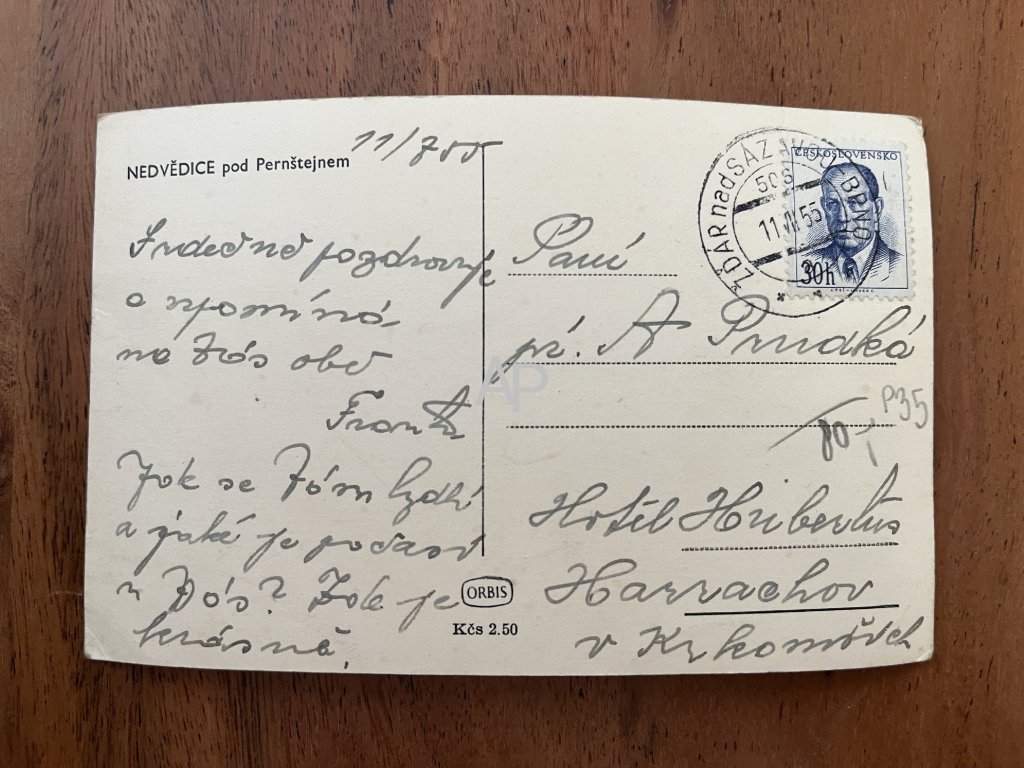 NEDVĚDICE pod Pernštejnem
11/7 55
Srdečně pozdravuje
a vzpomíná
na Vás obě
Frant.
Jak se Vám vede
a jaké je počasí
u Vás? Zde je
krásně.
ORBIS
Kčs 2.50
ŽĎÁR nad SÁZAVOU - BRNO
508
11.VII.55
ČESKOSLOVENSKO
30h
Paní
př. A Prudká
P35
80,-
Hotel Hubertus
Harrachov
v Krkonoších
AP